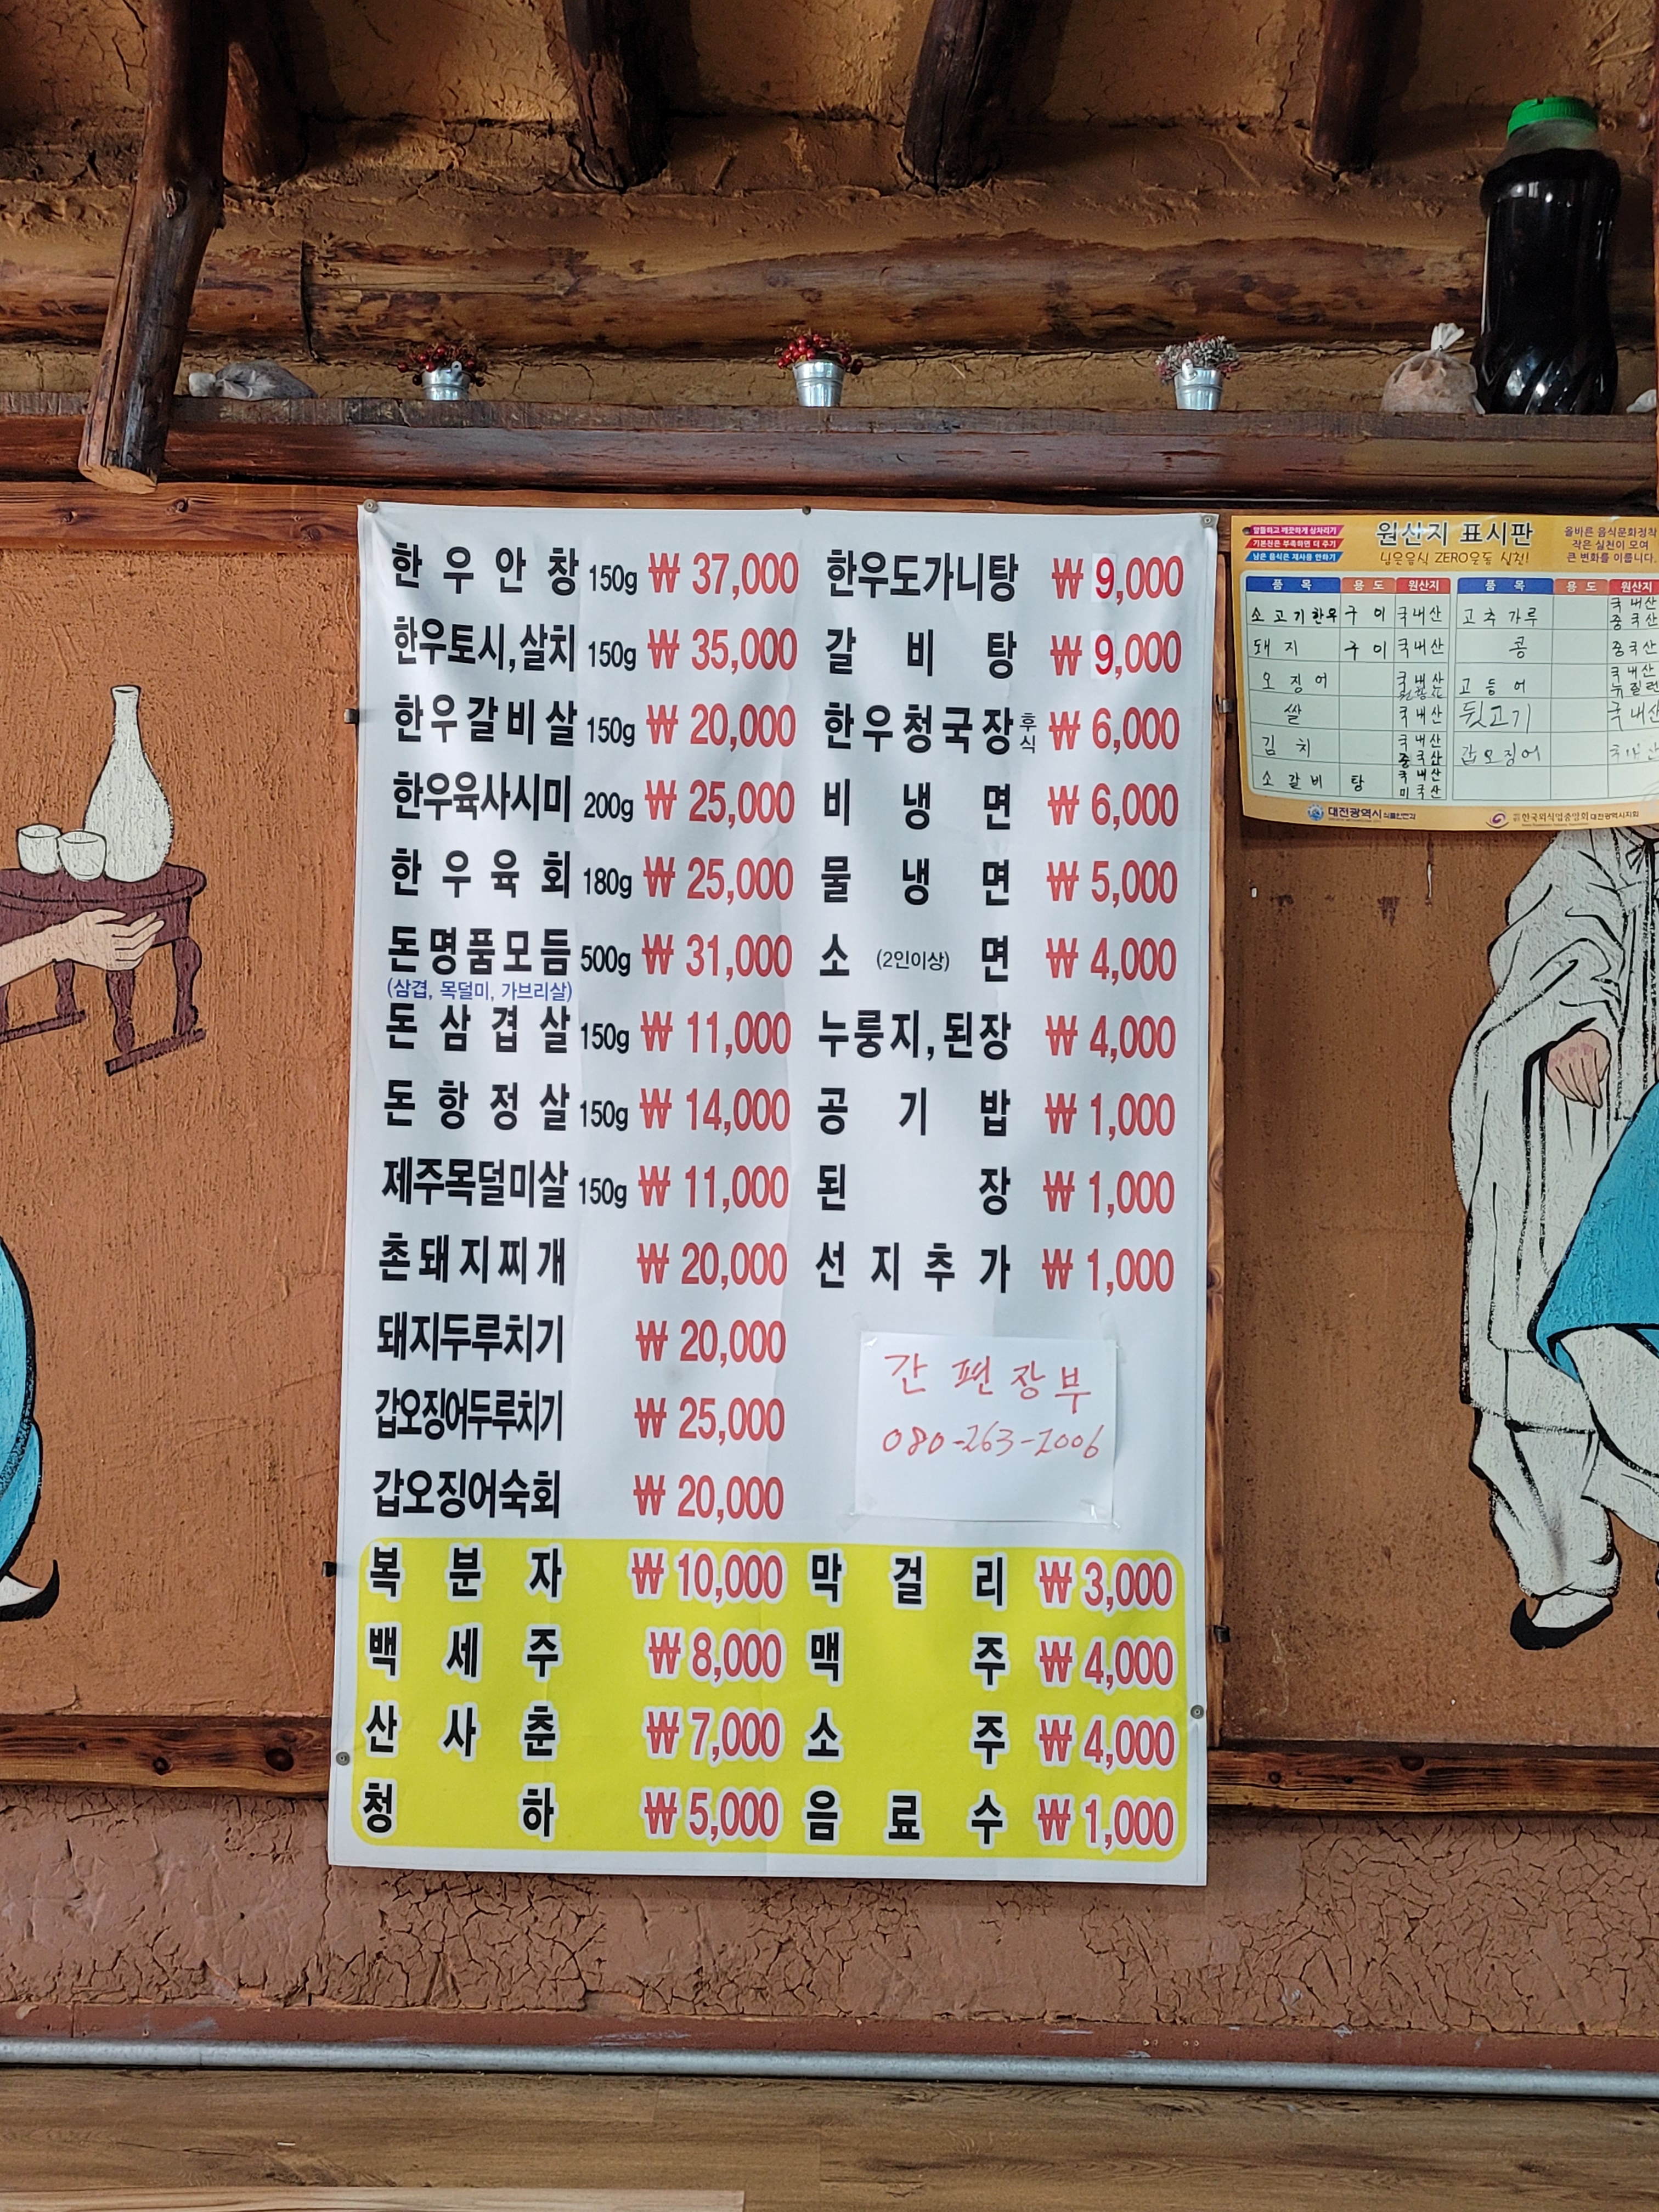 한우안창 150g ₩ 37,000
한우토시,살치 150g ₩ 35,000
한우갈비살 150g ₩ 20,000
한우육사시미 200g ₩ 25,000
한우육회 180g ₩ 25,000
돈명품모듬 500g ₩ 31,000
(삼겹, 목덜미, 가브리살)
돈삼겹살 150g ₩ 11,000
돈항정살 150g ₩ 14,000
제주목덜미살 150g ₩ 11,000
촌돼지찌개 ₩ 20,000
돼지두루치기 ₩ 20,000
갑오징어두루치기 ₩ 25,000
갑오징어숙회 ₩ 20,000
한우도가니탕 ₩ 9,000
갈비탕 ₩ 9,000
한우청국장 후식 ₩ 6,000
비냉면 ₩ 6,000
물냉면 ₩ 5,000
소 (2인이상) 면 ₩ 4,000
누룽지,된장 ₩ 4,000
공기밥 ₩ 1,000
된장 ₩ 1,000
선지추가 ₩ 1,000
간편장부
080-263-2006
복분자 ₩ 10,000
백세주 ₩ 8,000
산사춘 ₩ 7,000
청하 ₩ 5,000
막걸리 ₩ 3,000
맥주 ₩ 4,000
소주 ₩ 4,000
음료수 ₩ 1,000
알뜰하고 깨끗하게 상차리기
기본찬은 부족하면 더 주기
남은 음식은 재사용 안하기
원산지 표시판
남은음식 ZERO운동 실천!
올바른 음식문화정착
작은 실천이 모여
큰 변화를 이룹니다.
품목 용도 원산지
소고기한우 구이 국내산
돼지 구이 국내산
오징어 국내산
쌀 국내산
김치 국내산 중국산
소갈비 탕 국내산 미국산
품목 용도 원산지
고추가루 국내산 중국산
콩 중국산
고등어 국내산
뒷고기 국내산
갑오징어
대전광역시 식품안전과
한국외식업중앙회 대전광역시지회